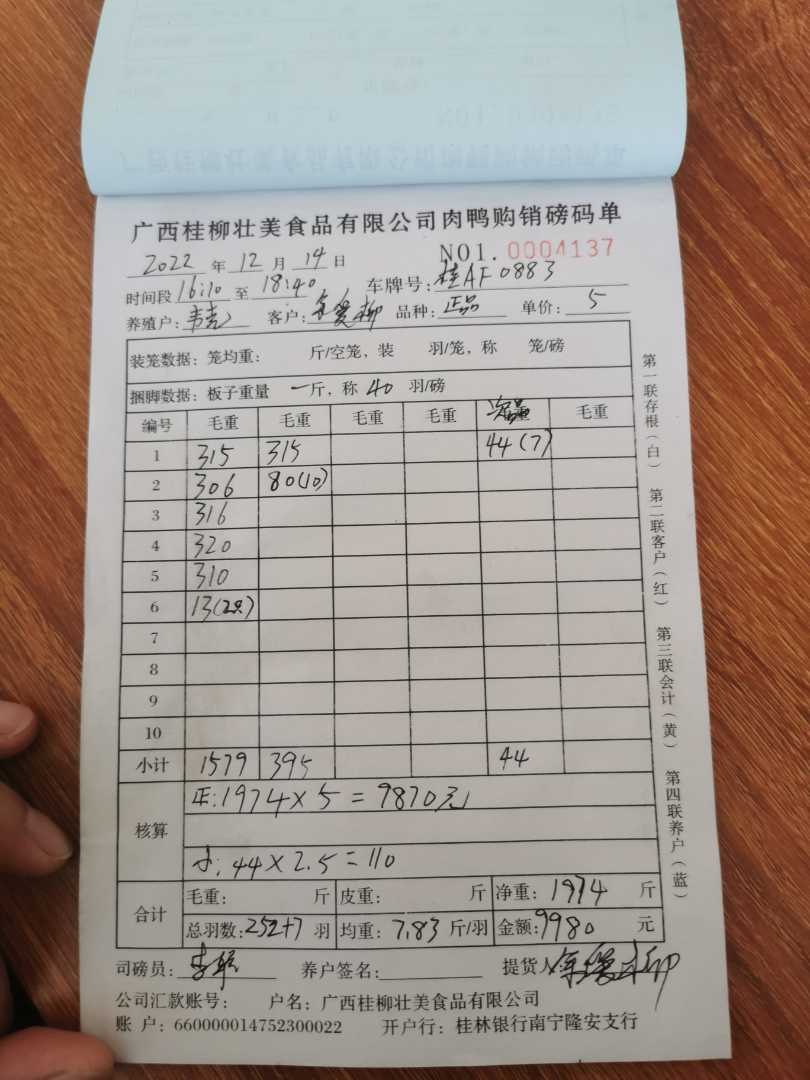 广西桂柳壮美食品有限公司肉鸭购销磅码单
2022 年 12 月 14 日 NO1. 0004137
时间段 16:10 至 18:40 车牌号: 桂AF0883
养殖户: 客户: 柳 品种: 正品 单价: 5
装笼数据: 笼均重: 斤/空笼, 装 羽/笼, 称 笼/磅
捆脚数据: 板子重量 一斤, 称 40 羽/磅
编号 毛重 毛重 毛重 毛重 毛重
1 315 315 44(7)
2 306 80(10)
3 316
4 320
5 310
6 13(2只)
7
8
9
10
小计 1579 395 44
核算 正:1974×5=9870元
小:44×2.5=110
合计 毛重: 斤 皮重: 斤 净重: 1974 斤
总羽数: 252+7 羽 均重: 7.83 斤/羽 金额: 9980 元
司磅员: 养户签名: 提货人:
公司汇款账号: 户名: 广西桂柳壮美食品有限公司
账 户: 660000014752300022 开户行: 桂林银行南宁隆安支行
第一联存根(白) 第二联客户(红) 第三联会计(黄) 第四联养户(蓝)